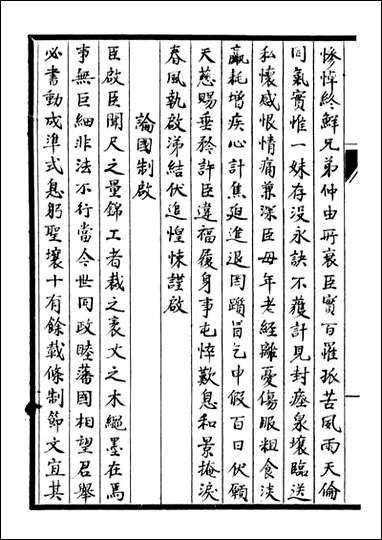 慘悼終鮮兄弟仲由所哀臣實百罹孤苦風雨天倫
同氣實惟一妹存没永訣不獲計見封瘞泉壤臨送
私懷感恨情痛兼深臣母年老經離憂傷服粗食淡
羸耗增疾心計焦迫進退罔躓冒乞申假百日伏願
天慈賜垂矜許臣違福履身事屯悴歎息和景掩淚
春風執啟涕結伏追惶悚謹啟
論國制啟
臣啟臣聞尺之量錦工者裁之袤丈之木繩墨在焉
事無巨細非法不行當今世同政睦藩國相望君舉
必書動成準式息躬聖壤十有餘載條制節文宜其